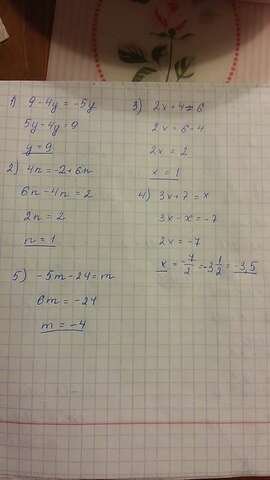 1) 9-4y=-5y
5y-4y=9
y=9
2) 4n=-2+6n
6n-4n=2
2n=2
n=1
5) -5m-24=m
6m=-24
m=-4
3) 2x+4=6
2x=6-4
2x=2
x=1
4) 3x+7=x
3x-x=-7
2x=-7
x=-7/2=-3 1/2=-3,5